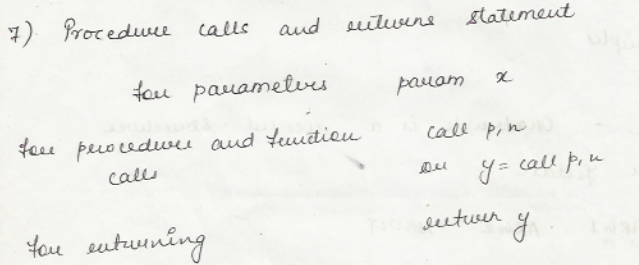 7) Procedure calls and return statement
for parameters param x
for procedure and function call p,n
calls or y = call p,n
for returning return y.